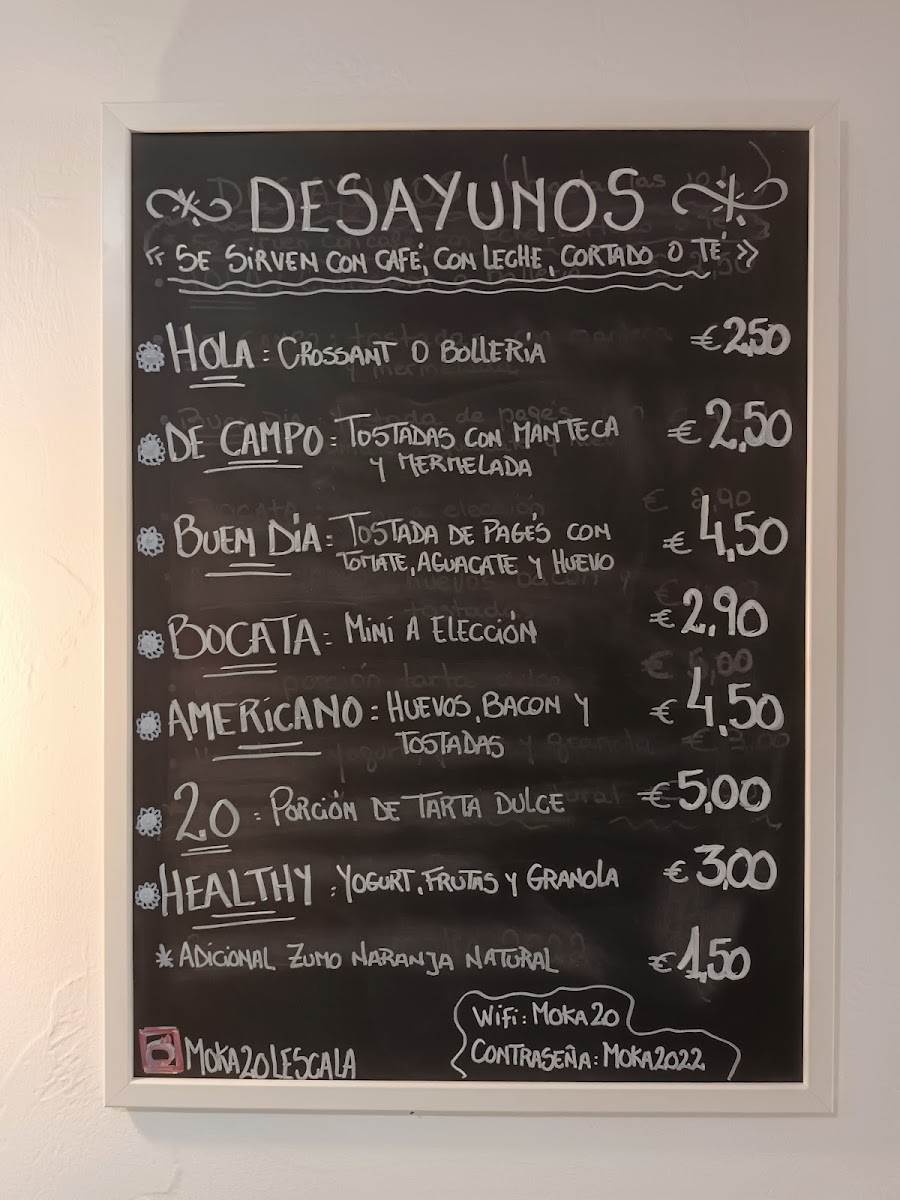 DESAYUNOS
« SE SIRVEN CON CAFÉ, CON LECHE, CORTADO O TÉ »
HOLA : CROSSANT O BOLLERÍA €2,50
DE CAMPO : TOSTADAS CON MANTECA €2,50
Y MERMELADA
BUEN DÍA : TOSTADA DE PAGÉS CON €4,50
TOMATE, AGUACATE Y HUEVO
BOCATA : MINI A ELECCIÓN €2,90
AMERICANO : HUEVOS, BACON Y €4,50
TOSTADAS
20 : PORCIÓN DE TARTA DULCE €5,00
HEALTHY : YOGURT, FRUTAS Y GRANOLA €3,00
* ADICIONAL ZUMO NARANJA NATURAL €1,50
WIFI : MOKA20
CONTRASEÑA : MOKA2022
MOKA20LESCALA